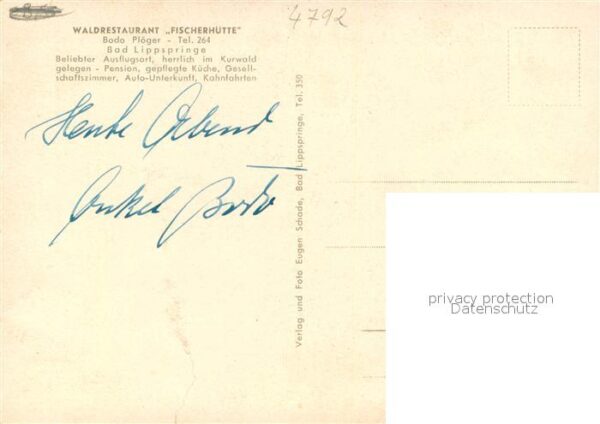 4792
WALDRESTAURANT „FISCHERHÜTTE“
Bodo Plöger - Tel. 264
Bad Lippspringe
Beliebter Ausflugsort, herrlich im Kurwald
gelegen - Pension, gepflegte Küche, Gesell-
schaftszimmer, Auto-Unterkunft, Kahnfahrten
Heute Abend
Onkel Bodo
Verlag und Foto Eugen Schade, Bad Lippspringe, Tel. 350
privacy protection
Datenschutz